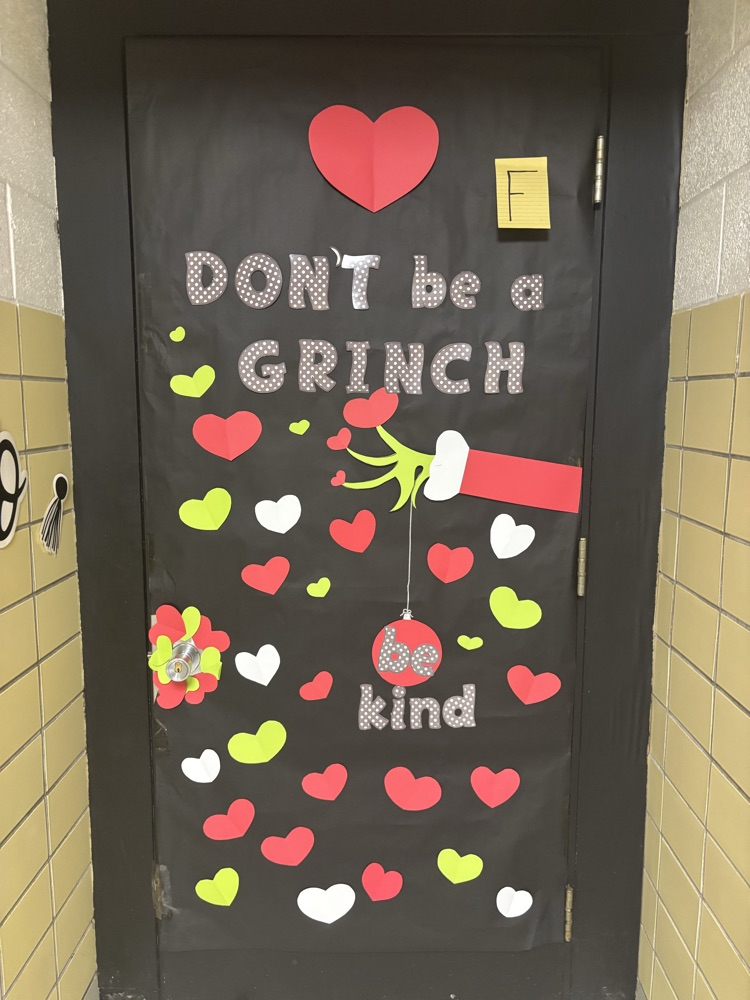 F
DON'T be a
GRINCH
be
kind